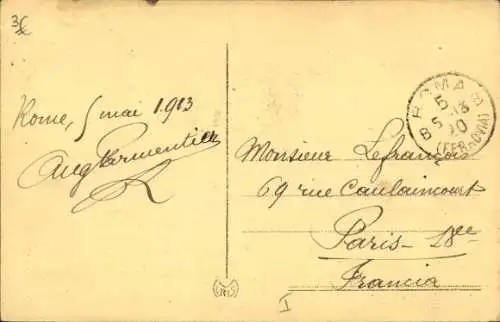 3€
Rome, 5 mai 1913
Aug Parmentier
ROMA
5 5 13
(FERROVIA)
Monsieur Lefrançois
69 rue Caulaincourt
Paris - 18ee
Francia
I